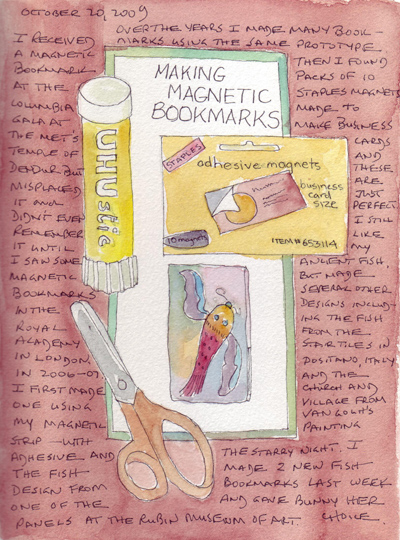 OCTOBER 20, 2009
OVER THE YEARS I MADE MANY BOOK-
MARKS USING THE SAME PROTOTYPE
I RECEIVED
A MAGNETIC
BOOKMARK
AT THE
COLUMBIA
GALA AT
THE MET'S
TEMPLE OF
DENDUR BUT
MISPLACED
IT AND
DIDN'T EVEN
REMEMBER
IT UNTIL
I SAW SOME
MAGNETIC
BOOKMARKS
IN THE
ROYAL
ACADEMY
IN LONDON
IN 2006-07.
I FIRST MADE
ONE USING
MY MAGNETIC
STRIP WITH
ADHESIVE AND
THE FISH
DESIGN FROM
ONE OF THE
PANELS AT THE RUBIN MUSEUM OF ART
MAKING
MAGNETIC
BOOKMARKS
UHU stic
STAPLES
adhesive magnets
business
card
SIZE
10 magnets
ITEM# 653114
THEN I FOUND
PACKS OF 10
STAPLES MAGNETS
MADE TO
MAKE BUSINESS
CARDS
AND
THESE
ARE
JUST
PERFECT.
I STILL
LIKE
MY
ANCIENT FISH,
BUT MADE
SEVERAL OTHER
DESIGNS INCLUD-
ING THE FISH
FROM THE
STAIR TILES IN
POSITANO, ITALY
AND THE
CHURCH AND
VILLAGE FROM
VAN GOGH'S
PAINTING
THE STARRY NIGHT. I
MADE 2 NEW FISH
BOOKMARKS LAST WEEK
AND GAVE BUNNY HER
CHOICE.